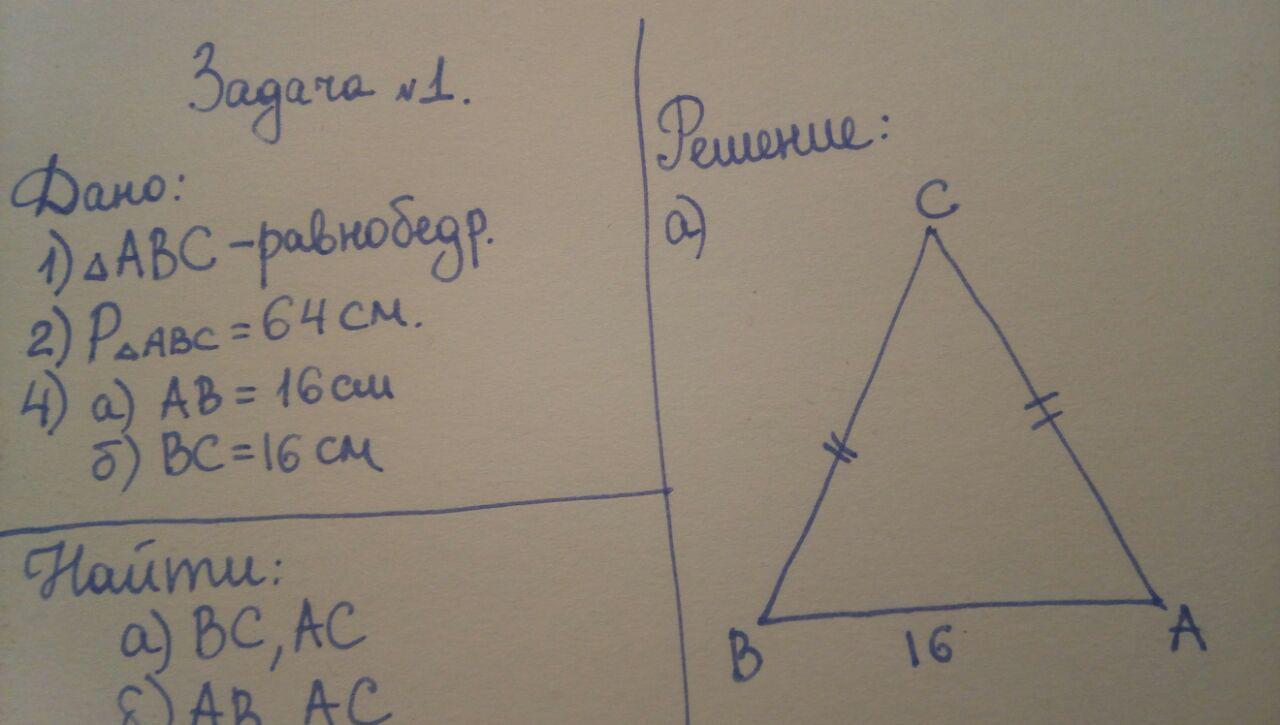 Задача №1.
Дано:
1) △ABC – равнобедр.
2) P△ABC = 64 см.
4) а) AB = 16 см
б) BC = 16 см
Найти:
а) BC, AC
б) AB AC
Решение:
а)
C
B
16
A